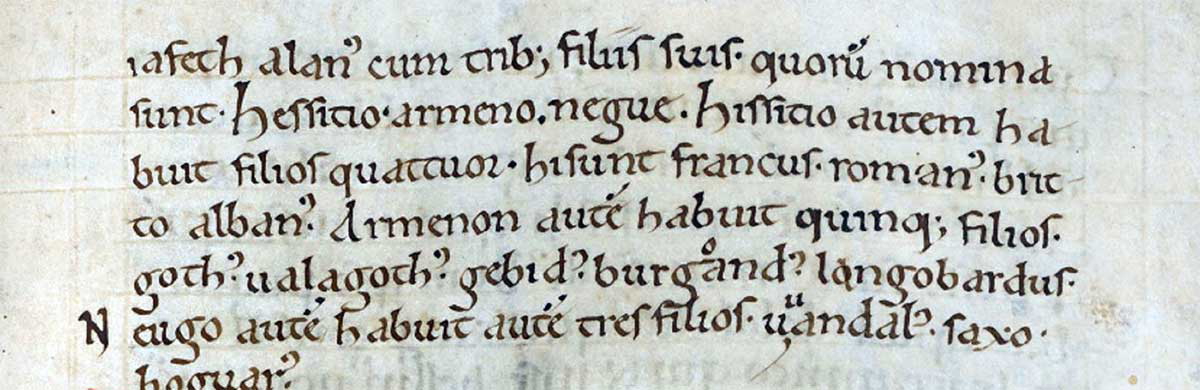 iafeth alanꝰ cum trib; filiis suis· quorū nomina
sunt· hessitio· armeno. negue· hissitio autem ha
buit filios quattuor· hi sunt francus· romanꝰ· brit
to albanꝰ. Armenon autē habuit quinq; filios·
gothꝰ ualagothꝰ gebidꝰ burgoandꝰ langobardus·
N eugo autē habuit autē tres filios· uuandalꝰ. saxo·
boguarꝰ